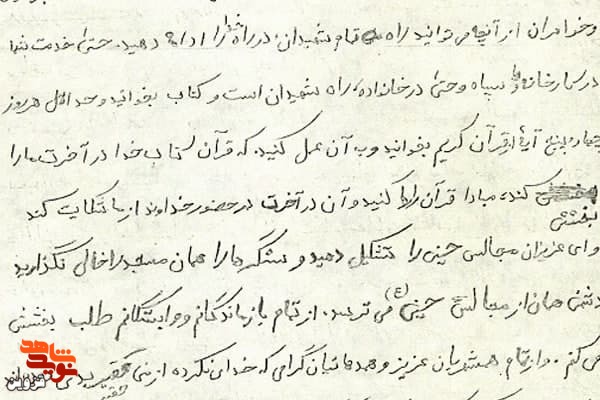 و خواهران از آنچه می توانید راه به تمام شهیدان در راه خدا را ادامه دهید. حتی خدمت شما
در کارخانه و یا سپاه و حتی در خانواده، راه شهیدان است و کتاب بخوانید و حداقل هر روز
چهار، پنج آیهٔ از قرآن کریم بخوانید و به آن عمل کنید. که قرآن کتاب خدا در آخرت ما را
بخشش کند، مبادا قرآن را رها کنید و آن در آخرت در حضور خداوند از ما شکایت کند
و ای عزیزان مجالس حسینی را تشکیل دهید و سنگرها را همان مسجد را خالی نگذارید
دشمن همان از مجالس حسینی (ع) می ترسد. از تمام بازماندگانم و وابستگانم طلب بخشش
می کنم. و از تمام همشهریان عزیز و همدهاتیان گرامی که خدای نکرده از من تقصیر بدی
شاهد
نوید